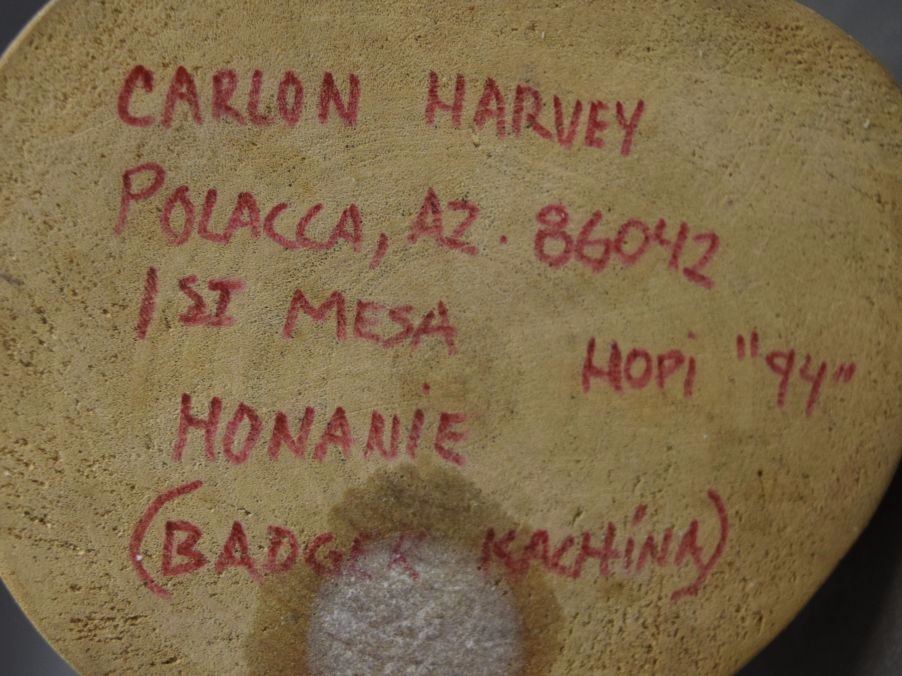 CARLON HARVEY
POLACCA, AZ. 86042
1ST MESA
HOPi "94"
HONANiE
(BADGER KACHiNA)